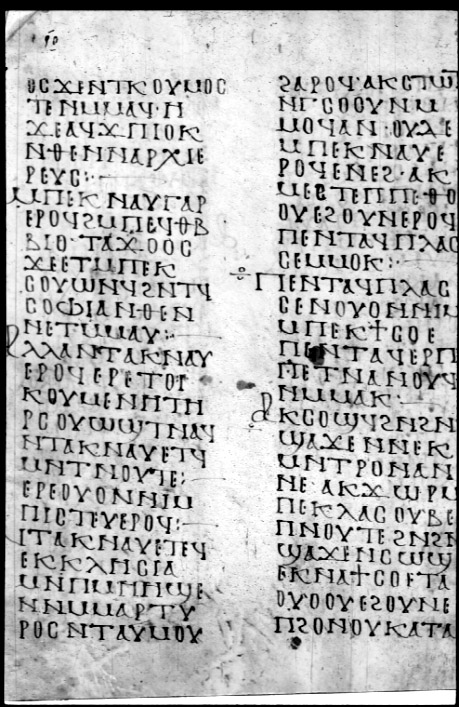 ⲟⲥϫⲉⲛⲧⲕⲟⲩⲙⲟⲥ
ⲧⲉⲛⲙⲙⲁϥ·ⲏ
ϫⲉⲁϥϫⲡⲓⲟⲕ
ⲛϭⲉⲛⲛⲁⲣⲭⲓⲉ
ⲣⲉⲩⲥ:
ⲙⲡⲉⲕⲛⲁⲩⲅⲁⲣ
ⲉⲣⲟϥϩⲙⲡⲉϥⲑⲃ
ⲃⲓⲟ·ⲧⲁϫⲟⲟⲥ
ϫⲉⲉⲧⲙⲡⲉⲕ
ⲥⲟⲩⲱⲛϥϩⲛⲧϥ
ⲥⲟⲫⲓⲁⲛϭⲉⲛ
ⲛⲉⲧⲙⲙⲁⲩ:
ⲁⲗⲗⲁⲛⲧⲁⲕⲛⲁⲩ
ⲉⲣⲟϥⲉⲣⲉⲧⲟⲓ
ⲕⲟⲩⲙⲉⲛⲏⲧⲏ
ⲣⲥⲟⲩⲱϣⲧⲛⲁϥ
ⲛⲧⲁⲕⲛⲁⲩⲉⲧϥ
ⲙⲛⲧⲛⲟⲩⲧⲉ:
ⲉⲣⲉⲟⲩⲟⲛⲛⲓⲙ
ⲡⲓⲥⲧⲉⲩⲉⲣⲟϥ:
ⲛⲧⲁⲕⲛⲁⲩⲉⲧⲉϥ
ⲉⲕⲕⲗⲏⲥⲓⲁ
ⲙⲛⲡⲙⲏⲏϣⲉ
ⲛⲙⲙⲁⲣⲧⲩ
ⲣⲟⲥⲛⲧⲁⲩⲙⲟⲩ
ϩⲁⲣⲟϥ·ⲁⲕⲥⲧⲱ
ⲛⲅⲥⲟⲟⲩⲛⲙ
ⲙⲟϥⲁⲛ·ⲟⲩⲇⲉ
ⲙⲡⲉⲕⲛⲁⲩⲉ
ⲣⲟϥⲉⲛⲉϩ·ⲁⲕ
ⲙⲉⲥⲧⲉⲡⲉⲧϭⲟ
ⲟⲩⲉϩⲟⲩⲛⲉⲣⲟϥ
ⲡⲉⲛⲧⲁϥⲡⲗⲁⲥ
ⲥⲉⲙⲙⲟⲕ:
ⲡⲉⲛⲧⲁϥⲡⲗⲁⲥ
ⲥⲉⲛⲟⲩⲟⲛⲛⲓⲙ
ⲙⲡⲉⲕϯⲥⲟⲉ
ⲡⲉⲛⲧⲁϥⲉⲣⲡ
ⲡⲉⲧⲛⲁⲛⲟⲩϥ
ⲛⲙⲙⲁⲕ·
ⲁⲕⲥⲟϣϥϩⲛϩⲛ
ϣⲁϫⲉⲛⲛⲉⲕ
ⲙⲛⲧⲣⲟⲛⲁⲛ
ⲛⲉ·ⲁⲕϫⲱⲣⲙ
ⲡⲉⲕⲗⲁⲥⲟⲩⲃⲉ
ⲡⲛⲟⲩⲧⲉϩⲛϩⲛ
ϣⲁϫⲉⲛⲥⲱϣ
ⲉⲕⲛⲁϯⲥⲟⲉⲧⲁ
ⲟⲩⲟⲟⲩⲉϩⲟⲩⲛⲉ
ⲡⲥⲟⲛⲟⲩⲕⲁⲧⲁ